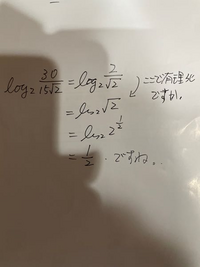 log₂ 30/15√2 = log₂ 2/√2 ここで有理化ですか。
= log₂ √2
= log₂ 2^(1/2)
= 1/2 . ですね..